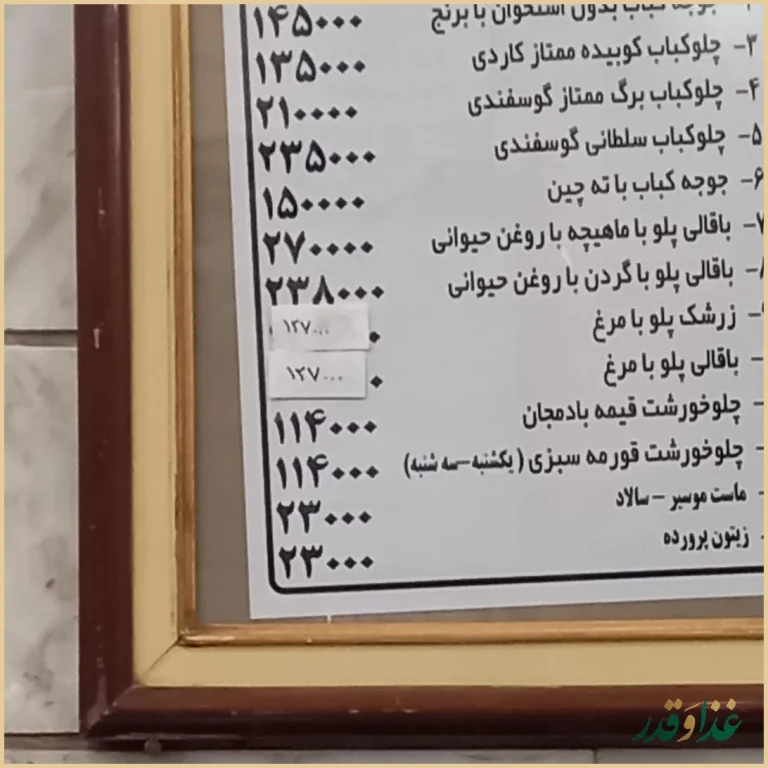 جوجه کباب بدون استخوان با برنج ۱۴۵۰۰۰
۳- چلوکباب کوبیده ممتاز کاردی ۱۳۵۰۰۰
۴- چلوکباب برگ ممتاز گوسفندی ۲۱۰۰۰۰
۵- چلوکباب سلطانی گوسفندی ۲۳۵۰۰۰
۶- جوجه کباب با ته چین ۱۵۰۰۰۰
۷- باقالی پلو با ماهیچه با روغن حیوانی ۲۷۰۰۰۰
۸- باقالی پلو با گردن با روغن حیوانی ۲۳۸۰۰۰
۹- زرشک پلو با مرغ ۱۲۷۰۰۰
- باقالی پلو با مرغ ۱۲۷۰۰۰
- چلوخورشت قیمه بادمجان ۱۱۴۰۰۰
- چلوخورشت قورمه سبزی (یکشنبه-سه شنبه) ۱۱۴۰۰۰
- ماست موسیر - سالاد ۲۳۰۰۰
زیتون پرورده ۲۳۰۰۰
غذا و قدر